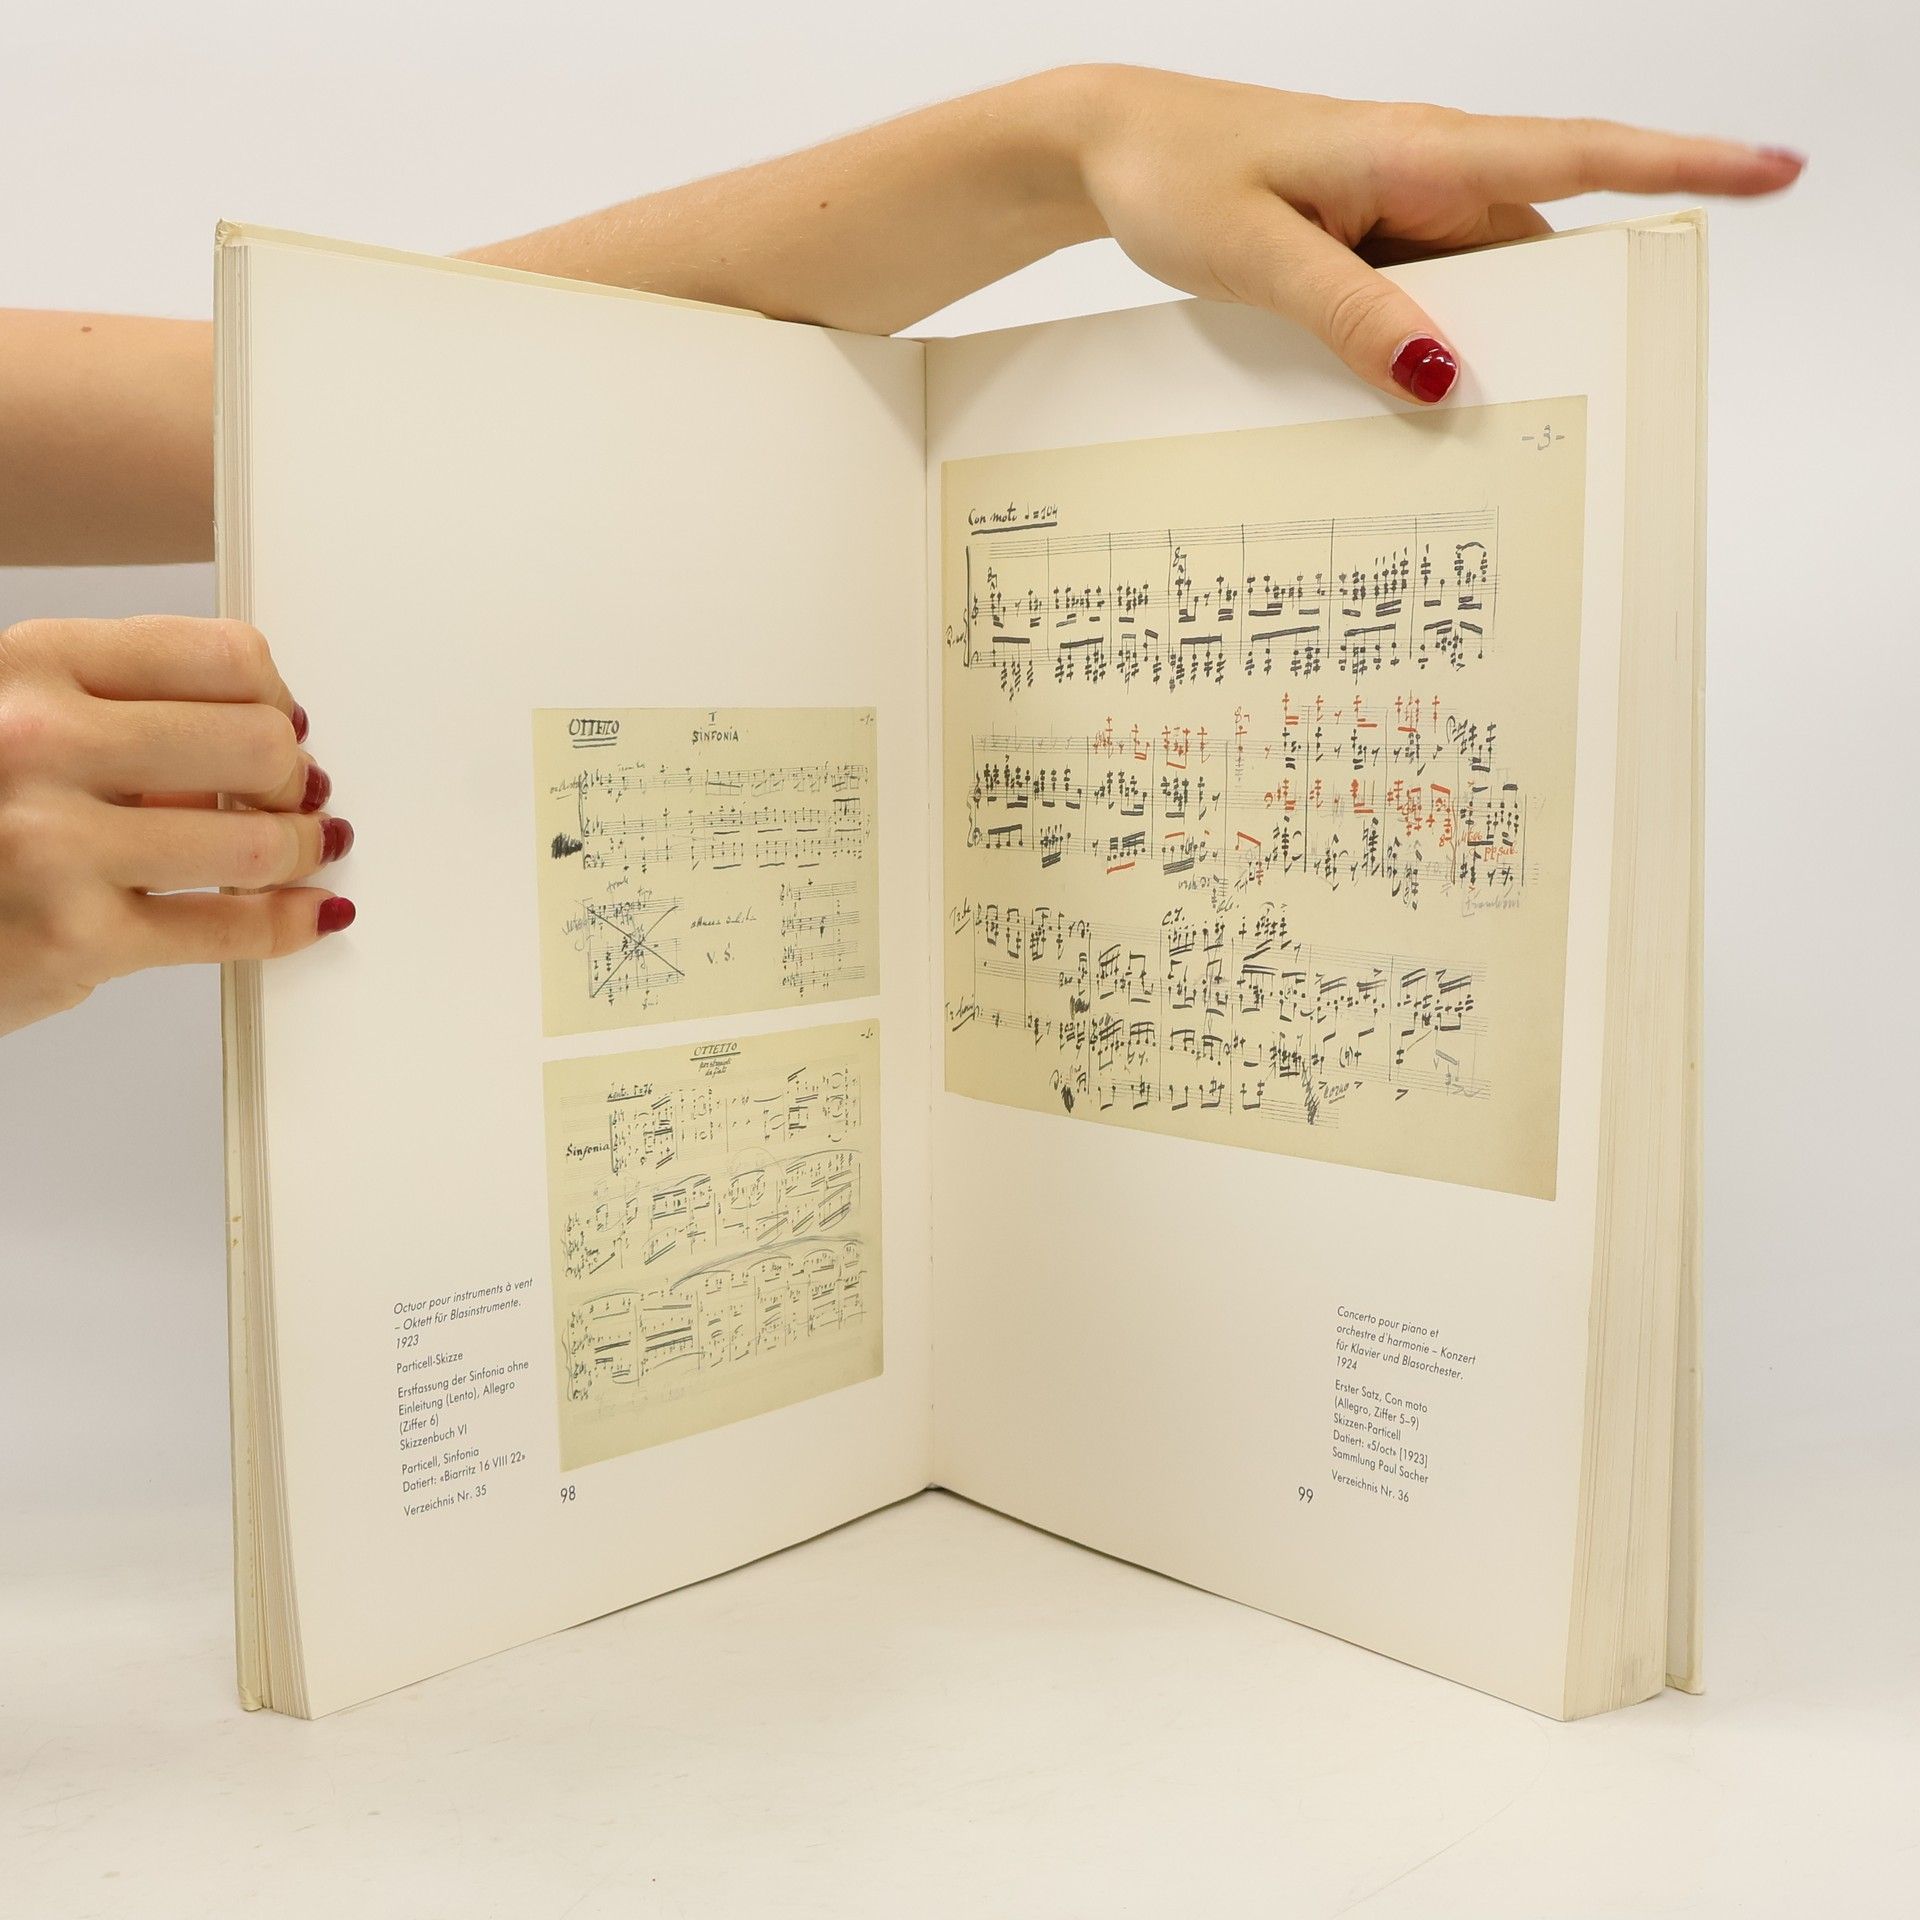 OTTETTO
I
SINFONIA
-1-
V. S.
-1-
OTTETTO
Lento.
Sinfonia
Octuor pour instruments à vent
– Oktett für Blasinstrumente.
1923
Particell-Skizze
Erstfassung der Sinfonia ohne
Einleitung (Lento), Allegro
(Ziffer 6)
Skizzenbuch VI
Particell, Sinfonia
Datiert: «Biarritz 16 VIII 22»
Verzeichnis Nr. 35
98
-3-
Con moto ♩=104
pp sub.
Concerto pour piano et
orchestre d'harmonie – Konzert
für Klavier und Blasorchester.
1924
Erster Satz, Con moto
(Allegro, Ziffer 5–9)
Skizzen-Particell
Datiert: «5/oct» [1923]
Sammlung Paul Sacher
Verzeichnis Nr. 36
99